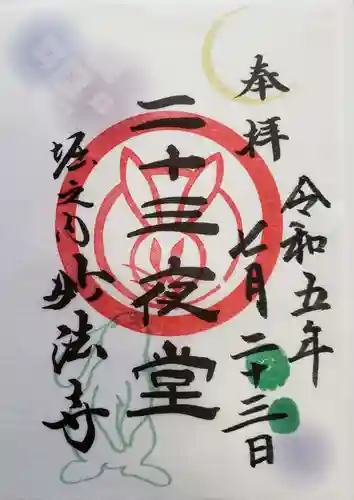 奉拝
令和五年
七月二十三日
二十三夜堂
堀之内妙法寺